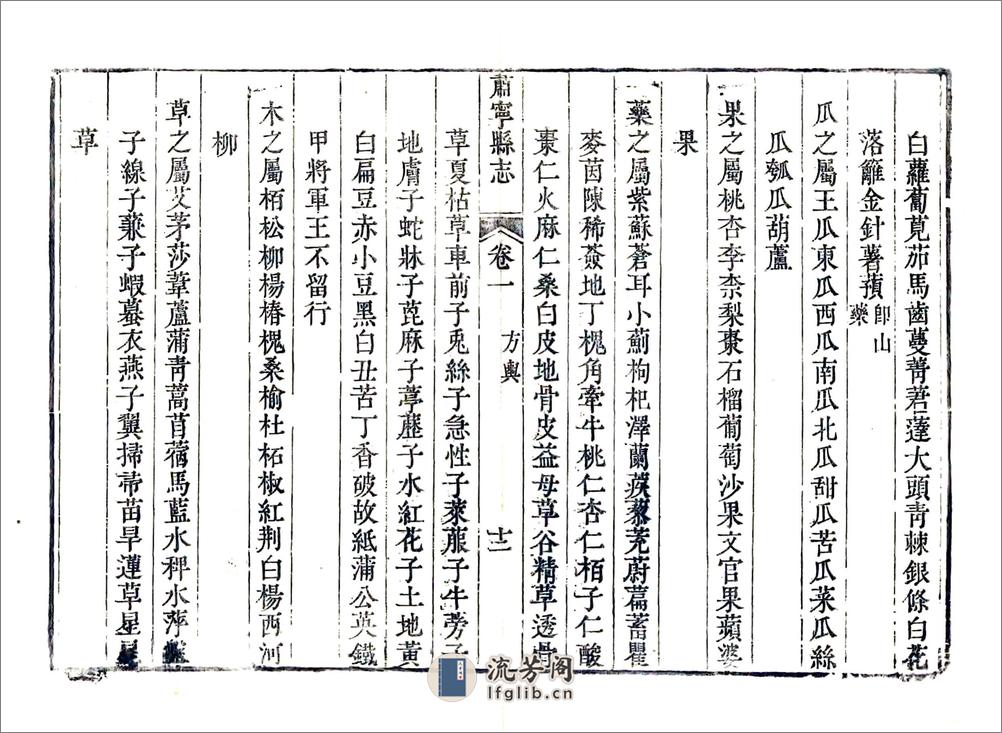 白蘿蔔莧茄馬齒蔓菁莙薘大頭青棘銀條白花
落籬金針薯蕷即山藥
瓜之屬王瓜東瓜西瓜南瓜北瓜甜瓜苦瓜菜瓜絲
瓜瓠瓜葫蘆
果之屬桃杏李柰梨棗石榴葡萄沙果文官果蘋婆
果
藥之屬紫蘇蒼耳小薊枸杞澤蘭蒺藜茺蔚萹蓄瞿
麥茵陳稀薟地丁槐角牽牛桃仁杏仁栢子仁酸
棗仁火麻仁桑白皮地骨皮益母草谷精草透骨
肅寧縣志 卷一 方輿 十二
草夏枯草車前子兎絲子急性子萊菔子牛蒡子
地膚子蛇牀子萞麻子葶藶子水紅花子土地黃
白扁豆赤小豆黑白丑苦丁香破故紙蒲公英鐵
甲將軍王不留行
木之屬栢松柳楊椿槐桑榆杜柘椒紅荆白楊西河
柳
草之屬艾茅莎葦蘆蒲青蒿苜蓿馬藍水稗水萍
子線子蒺子蝦蟇衣燕子翼掃帚苗旱蓮草星星
草
流芳阁
lfglib.cn